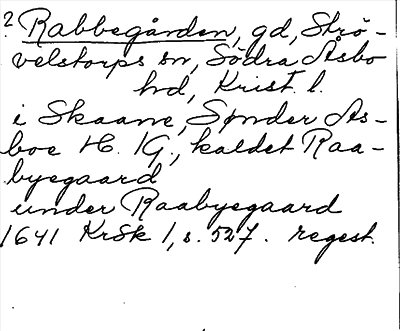 ? Rabbegården, gd, Strö-
velstorps sn, Södra Åsbo
hd, Krist. l.
i Skaane, Sønder As-
boe H. KG., kaldet Raa-
byegaard
under Raabyegaard
1641 KrSk 1, s. 527. regest.